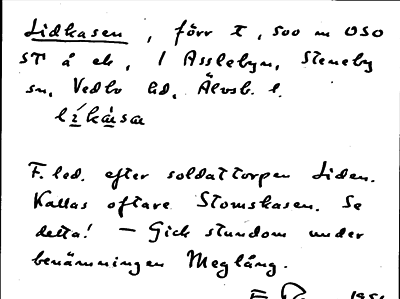 Lidkasen, förr t, 500 m OSO
ST å ek, 1 Asslebyn, Steneby
sn, Vedbo hd, Älvsb. l.
lìkàsa
F. led. efter soldattorpen Liden.
Kallas oftare Stomskasen. Se
detta! — Gick stundom under
benämningen Meglång.